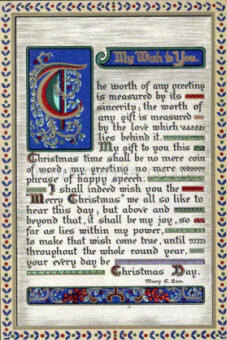 My Wish to You.
The worth of any greeting
is measured by its
sincerity; the worth of
any gift is measured
by the love which
lies behind it.
My gift to you this
Christmas time shall be no mere coin
of word; my greeting no mere
phrase of happy speech.
I shall indeed wish you the
"Merry Christmas" we all so like to
hear this day; but above and
beyond that, it shall be my joy, so
far as lies within my power,
to make that wish come true, until
throughout the whole round year,
your every day be
Christmas Day.
Mary E.